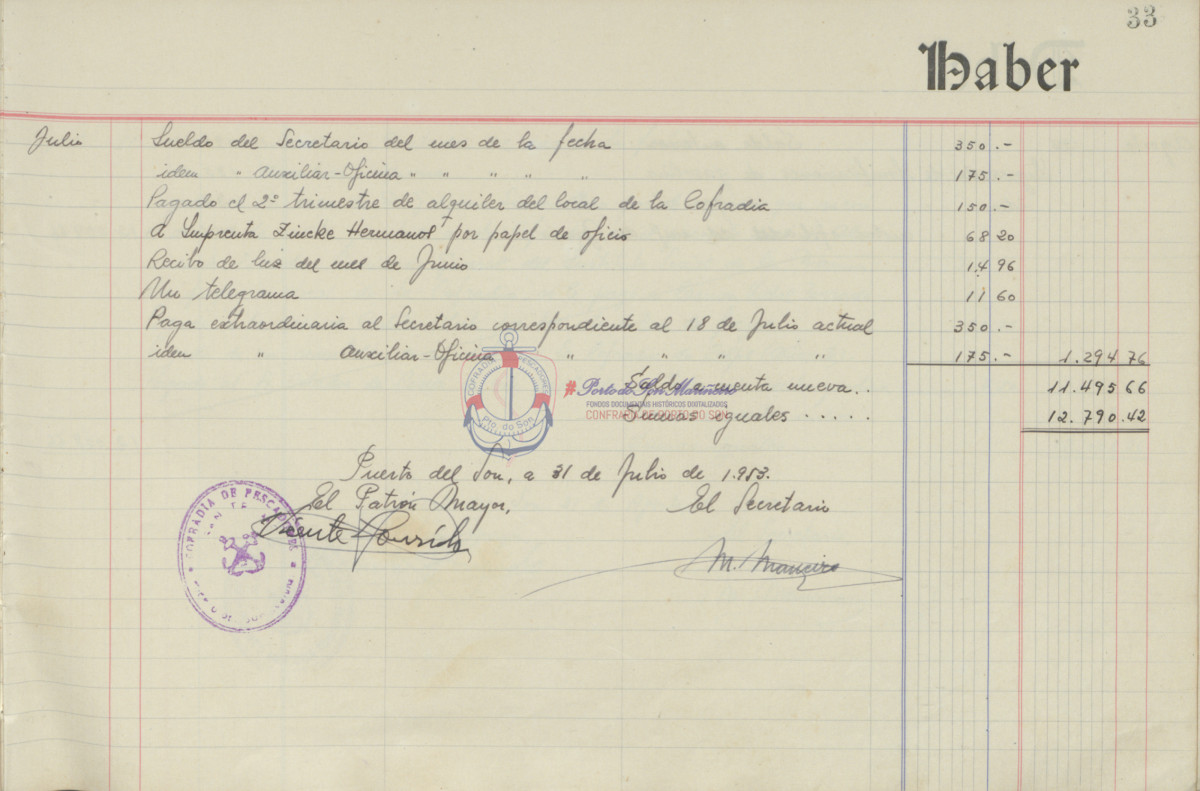 33
Haber
Julio Sueldo del Secretario del mes de la fecha 350.-
idem " Auxiliar-Oficina " " " " " 175.-
Pagado el 2º trimestre de alquiler del local de la Cofradia 150.-
A Imprenta Zincke Hermanos por papel de oficio 68 20
Recibo de luz del mes de Junio 14 96
Un telegrama 11 60
Paga extraordinaria al Secretario correspondiente al 18 de Julio actual 350.-
idem " Auxiliar-Oficina " " " " 175.- 1.294 76
Saldo a cuenta nueva.. 11.495 66
Sumas iguales ..... 12.790.42
COFRADÍA PESCADORES
Pto. do Son
#Porto do Son Marineiro
FONDOS DOCUMENTAIS HISTÓRICOS DIXITALIZADOS
CONFRARÍA DE PORTO DO SON
Puerto del Son, a 31 de Julio de 1.953.
El Patrón Mayor, El Secretario
Vicente
M.
COFRADIA DE PESCADORES